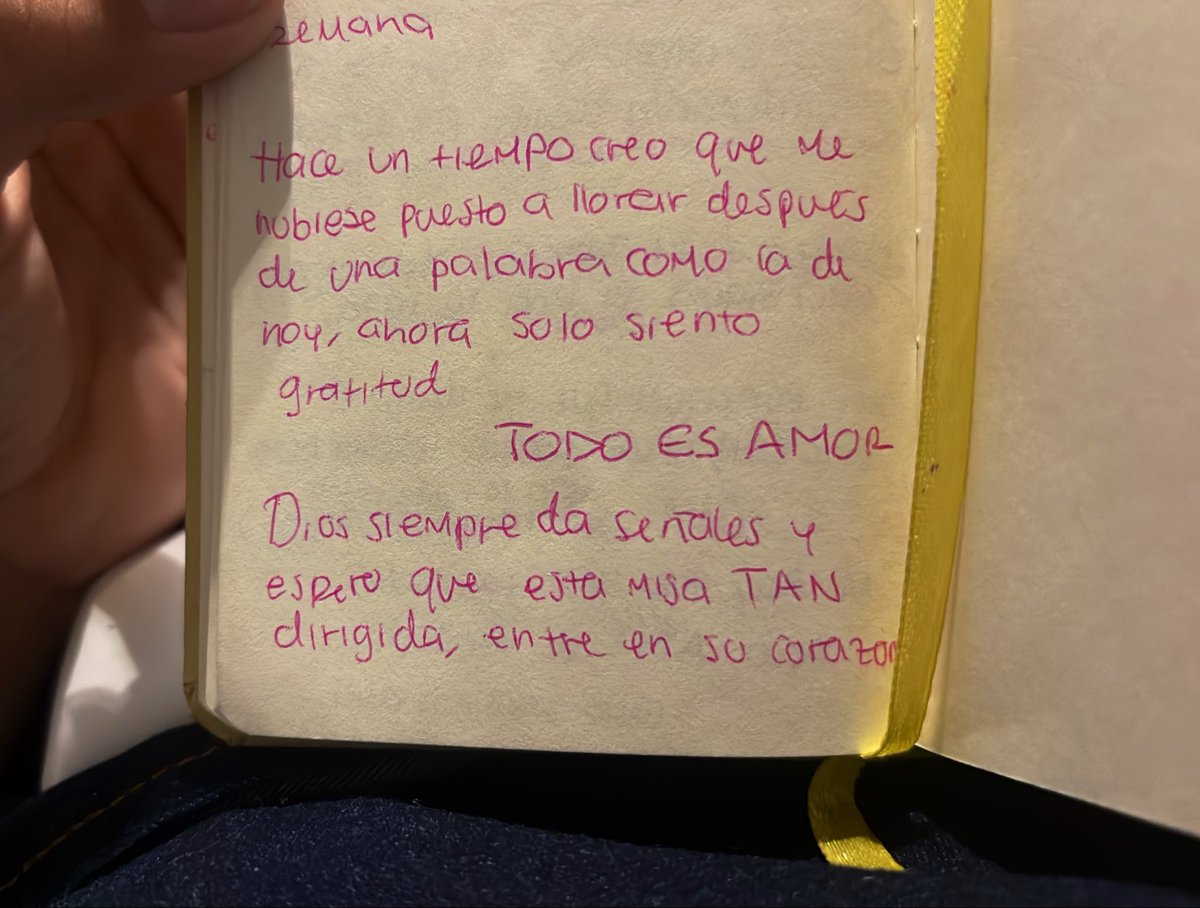 semana
Hace un tiempo creo que me
hobiese puesto a llorar despues
de una palabra como la de
hoy, ahora solo siento
gratitud
TODO ES AMOR
Dios siempre da señales y
espero que esta misa TAN
dirigida, entre en su corazon